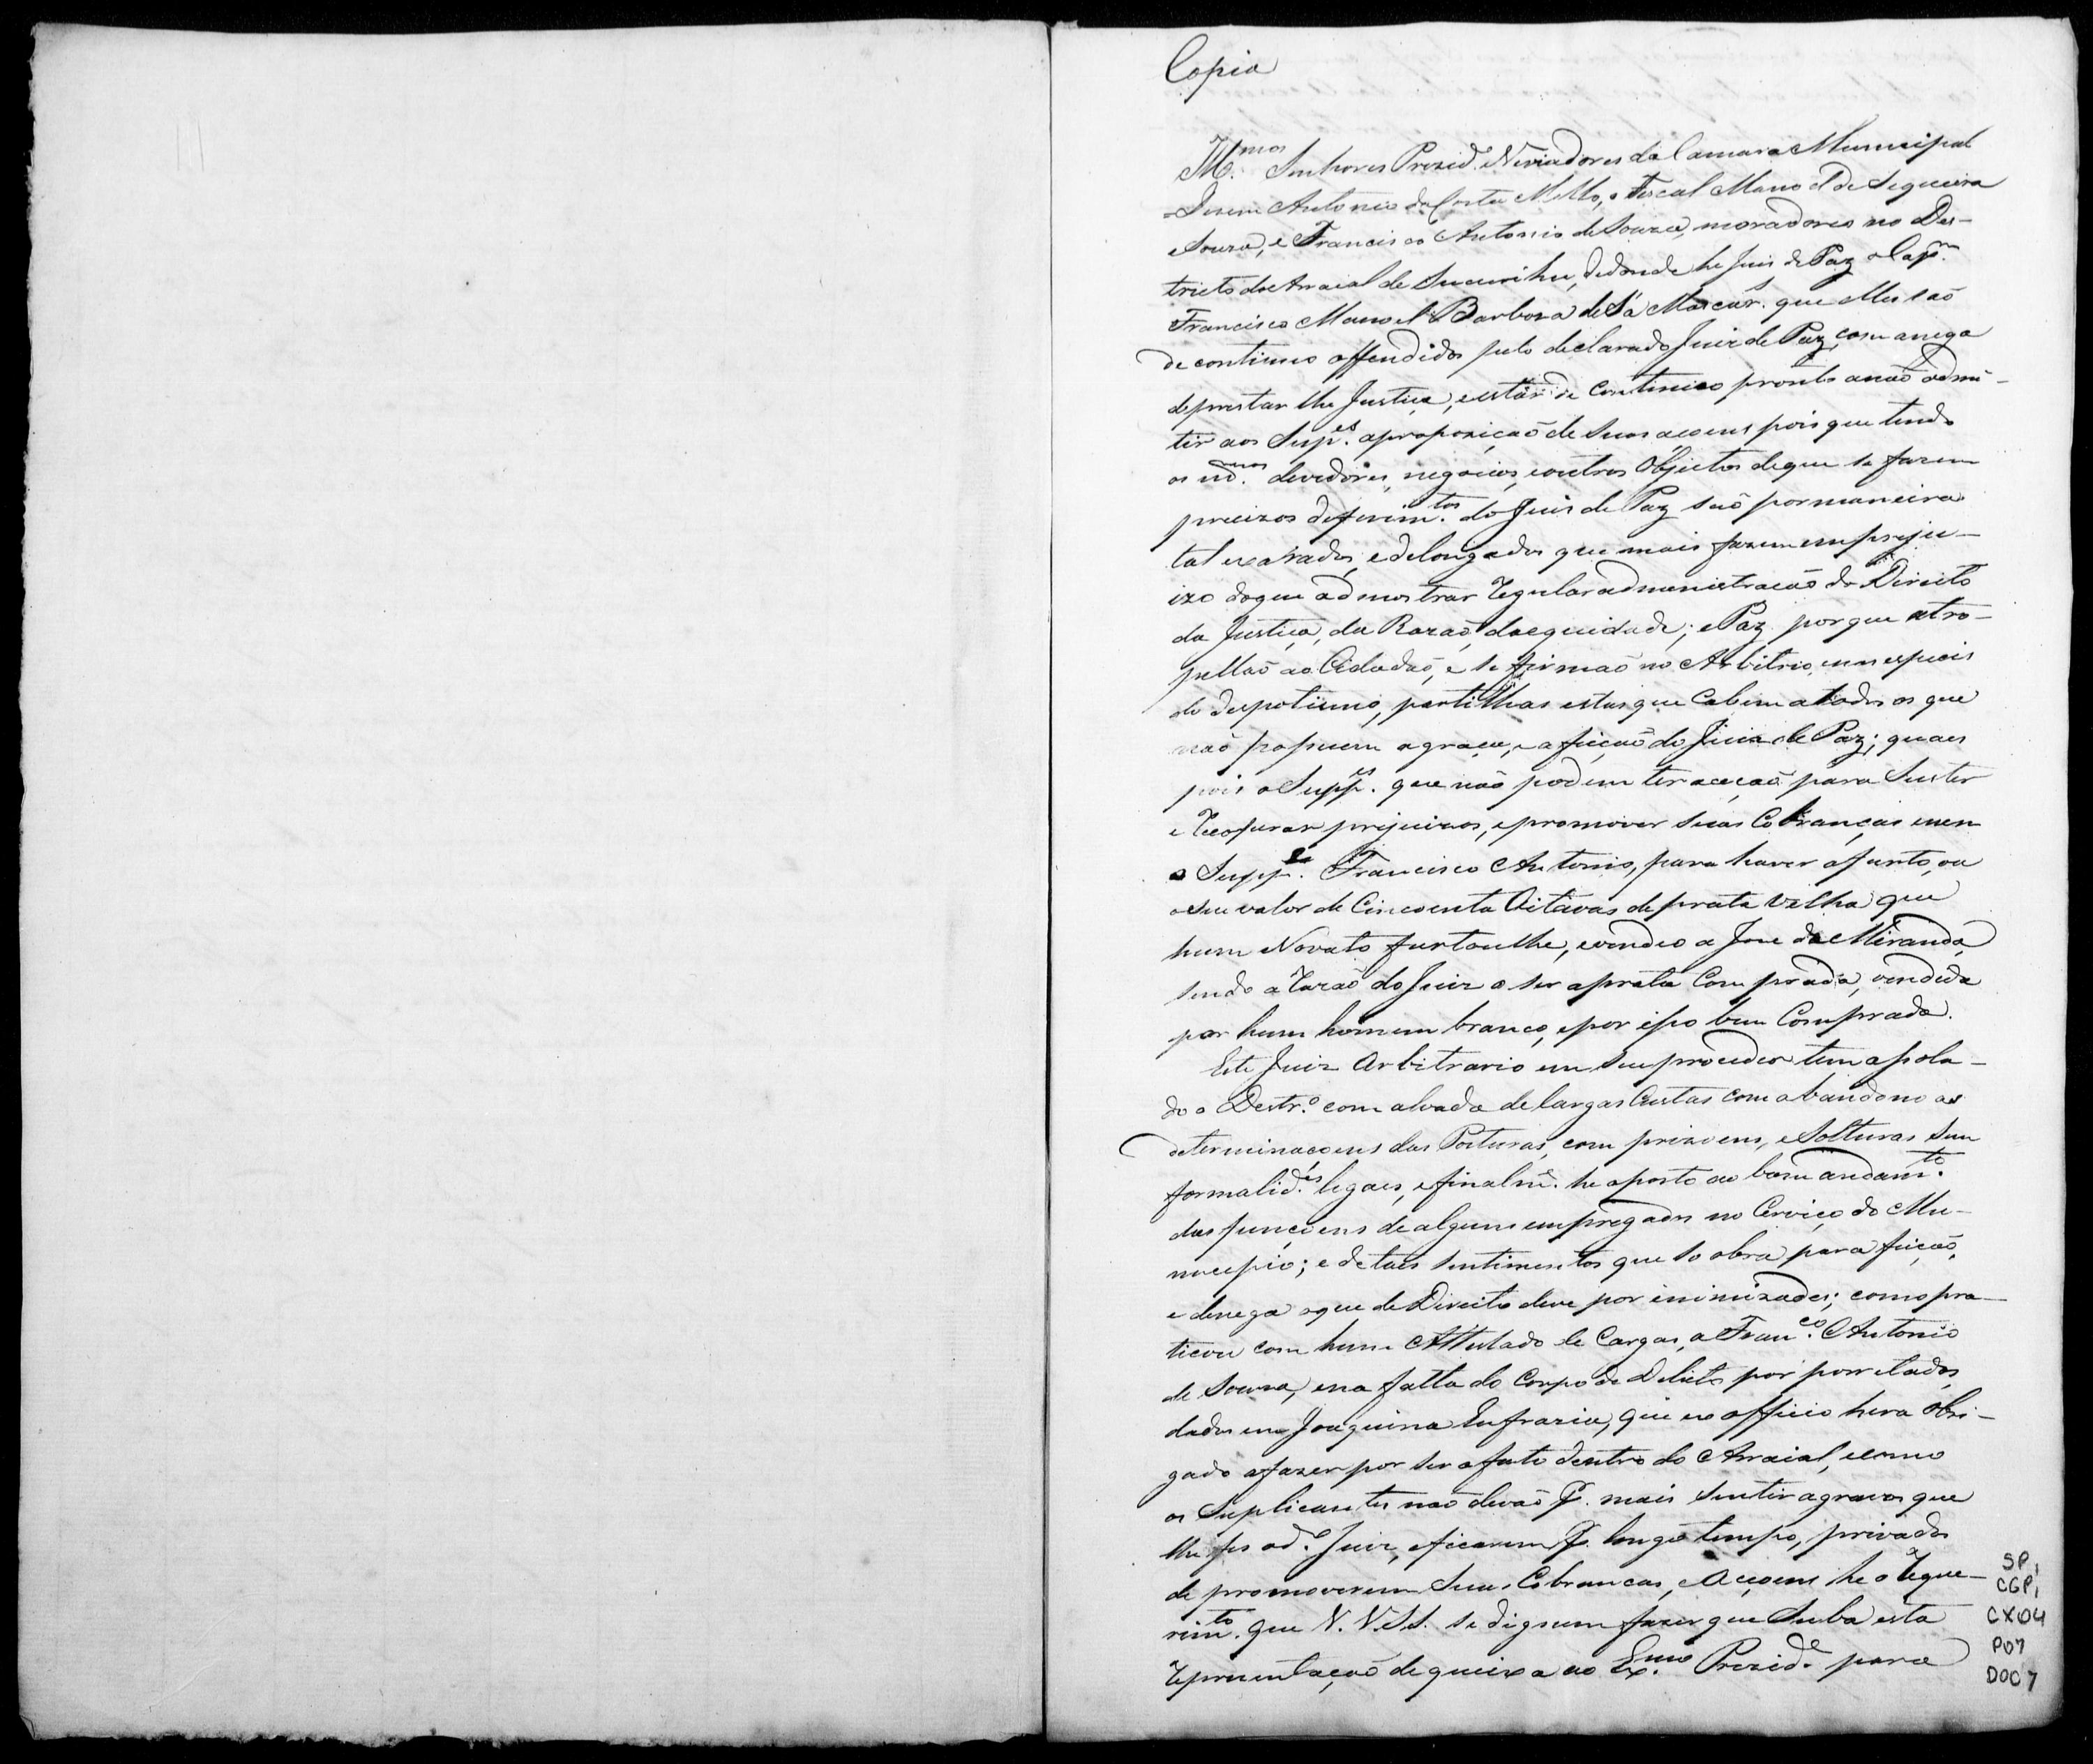 Copia
Ill.mos Senhores Prezid.e Veriadores da Camara Municipal
Dizem Antonio da Costa Mello, o Fiscal Manoel de Sequeira
e Souza, e Francisco Antonio de Souza, moradores no Des-
tricto do Arraial de Sucurihu, dedonde he Juis de Paz o Cap.m
Francisco Manoel Barboza de Sá Mascar.s que elles saõ
de continuo offendidos pelo declarado Juiz de Paz, com a nega
de prestar lhe Justiça, e estár de continuo pronto a naõ admi-
tir aos Sup.es a propoziçaõ de suas açoens pois que tendo
os m.mos devedores, negocios, e outros Objectos de que se fazem
precizos deferim.tos do Juis de Paz saõ por maneira
tal e delongados que mais fazem em preju-
izo do que admostrar regular administraçaõ do Direito
da Justiça, da Razaõ, da equidade; e Paz porque atro-
pellaõ ao Cidadaõ, e se firmaõ no Arbitrio, em especies
de despotismo, partilhas estas que cabem a todos os que
naõ possuem a graça, e afeiçaõ do Juiz de Paz; quaes
pois o Supp.es que naõ podem ter acçaõ para suster
e recoperar prejuizos, e promover suas Cobranças e nem
o Supp.e Francisco Antonio, para haver o furto, ou
o seu valor de Cincoenta Oitavas de prata velha que
hum Novato furtoulhe, e vendeo a Joze de Miranda,
sendo a razaõ do Juiz o ser a prata Comprada, vendida
por hum homem branco, e por isso bem Comprada.
Este Juiz Arbitrario em seu proceder tem assola-
do o Destr.o com alvada de largas Custas com abandono as
determinaçoens das Posturas, com prizoens, e Solturas sem
formalid.es legaes, e finalm.e he oposto ao bom andam.to
das funçoens de alguns empregados no Cerviço do Mu-
nicipio; e de taes sentimentos que so obra para feiçaõ,
e denega o que de Direito deve por inimizades; como pra-
ticou com hum Attestado de Cargas, a Fran.co Antonio
de Souza, e na falta do Corpo de Delicto por porretadas
dadas em Joaquina Eufrazia, que ex officio hera obri-
gado a fazer por ser o fato dentro do Arraial, e como
os Suplicantes naõ devaõ p. mais sentir agravos que
lhe fes o d.o Juiz, e ficarem p. longo tempo, privados
de promoverem suas Cobrancas, e Açoens he o reque-
rim.to que V.V.S.S. se dignem fazer que Suba esta
reprezentaçaõ de queixa ao Ex.mo Prezid.e para
SP,
CGP,
CX04
P07
DOC 7